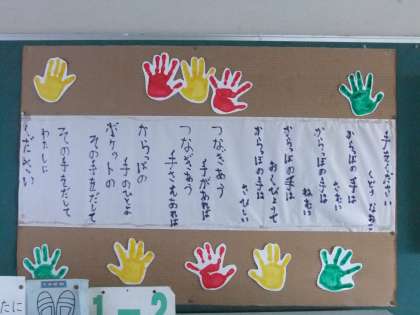 手をください
くどう なおこ
からっぽの手は
さむい
からっぽの手は
ねむい
からっぽの手は
おくびょうで
からっぽの手は
さびしい
つなぎあう
手があれば
つなぎあう
手さえあれば
からっぽの
手のひとよ
ポケットの
その手をだして
その手をだして
わたしに
ください
たに
1-2